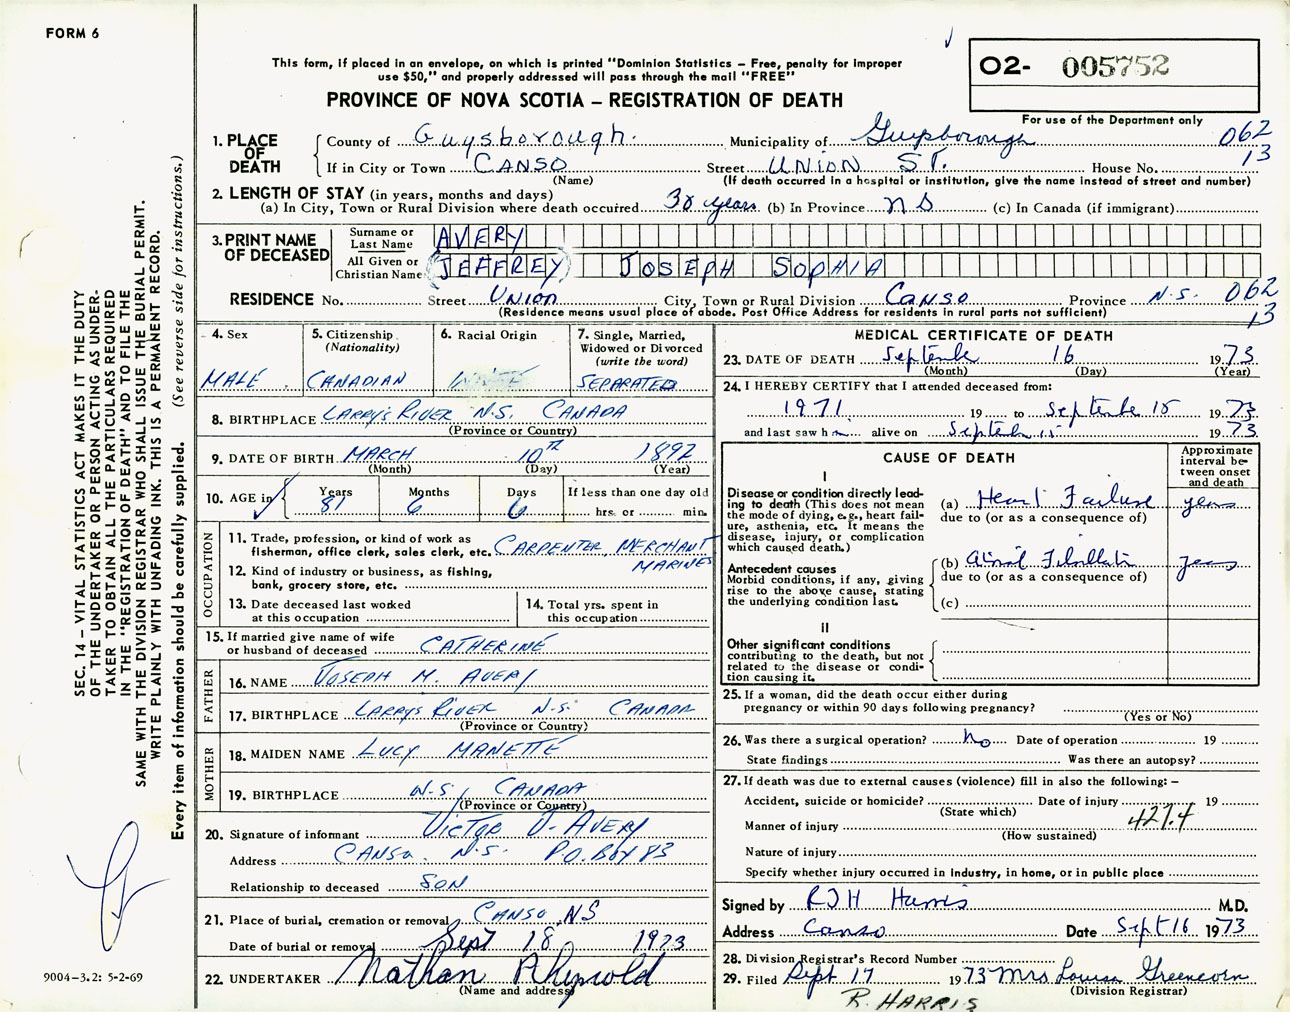 FORM 6
This form, if placed in an envelope, on which is printed "Dominion Statistics – Free, penalty for improper
use $50," and properly addressed will pass through the mail "FREE"
PROVINCE OF NOVA SCOTIA – REGISTRATION OF DEATH
O2- 005752
For use of the Department only
1. PLACE OF DEATH County of Guysborough. Municipality of Guysborough 062
If in City or Town CANSO Street UNION ST. House No. 13
(Name) (If death occurred in a hospital or institution, give the name instead of street and number)
2. LENGTH OF STAY (in years, months and days)
(a) In City, Town or Rural Division where death occurred 30 years (b) In Province NS (c) In Canada (if immigrant)
3. PRINT NAME OF DECEASED Surname or Last Name AVERY
All Given or Christian Name (JEFFREY) JOSEPH SOPHIA
RESIDENCE No. Street UNION City, Town or Rural Division CANSO Province N.S. 062
(Residence means usual place of abode. Post Office Address for residents in rural parts not sufficient) 13
4. Sex MALE
5. Citizenship (Nationality) CANADIAN
6. Racial Origin WHITE
7. Single, Married, Widowed or Divorced (write the word) SEPARATED
8. BIRTHPLACE LARRY'S RIVER N.S. CANADA
(Province or Country)
9. DATE OF BIRTH MARCH 10TH 1892
(Month) (Day) (Year)
10. AGE in Years 81 Months 6 Days 6 If less than one day old
hrs. or min.
OCCUPATION
11. Trade, profession, or kind of work as
fisherman, office clerk, sales clerk, etc. CARPENTER, MERCHANT
MARINES
12. Kind of industry or business, as fishing,
bank, grocery store, etc.
13. Date deceased last worked
at this occupation
14. Total yrs. spent in
this occupation
15. If married give name of wife
or husband of deceased CATHERINE
FATHER
16. NAME JOSEPH M. AVERY
17. BIRTHPLACE LARRYS RIVER N.S. CANADA
(Province or Country)
MOTHER
18. MAIDEN NAME LUCY MANETTE
19. BIRTHPLACE N.S. CANADA
(Province or Country)
20. Signature of informant VICTOR J. AVERY
Address CANSO. N.S. P.O. BOX 83
Relationship to deceased SON
21. Place of burial, cremation or removal CANSO, NS
Date of burial or removal Sept 18 1973
22. UNDERTAKER Nathan
(Name and address)
MEDICAL CERTIFICATE OF DEATH
23. DATE OF DEATH September 16 1973
(Month) (Day) (Year)
24. I HEREBY CERTIFY that I attended deceased from:
1971 19 to September 15 1973
and last saw him alive on September 15 1973
CAUSE OF DEATH
Approximate
interval be-
tween onset
and death
I
Disease or condition directly lead-
ing to death (This does not mean
the mode of dying, e.g., heart fail-
ure, asthenia, etc. It means the
disease, injury, or complication
which caused death.)
(a) Heart Failure years
due to (or as a consequence of)
Antecedent causes
Morbid conditions, if any, giving
rise to the above cause, stating
the underlying condition last.
(b) Atrial Fibrillation years
due to (or as a consequence of)
(c)
II
Other significant conditions
contributing to the death, but not
related to the disease or condi-
tion causing it.
25. If a woman, did the death occur either during
pregnancy or within 90 days following pregnancy?
(Yes or No)
26. Was there a surgical operation? No Date of operation 19
State findings Was there an autopsy?
27. If death was due to external causes (violence) fill in also the following: –
Accident, suicide or homicide? Date of injury 19
(State which)
Manner of injury 427.4
(How sustained)
Nature of injury
Specify whether injury occurred in industry, in home, or in public place
Signed by RJH Harris M.D.
Address Canso Date Sept 16 1973
28. Division Registrar's Record Number
29. Filed Sept 17 1973 Mrs Louisa Greencorn
(Division Registrar)
R. HARRIS
SEC. 14 – VITAL STATISTICS ACT MAKES IT THE DUTY
OF THE UNDERTAKER OR PERSON ACTING AS UNDER-
TAKER TO OBTAIN ALL THE PARTICULARS REQUIRED
IN THE "REGISTRATION OF DEATH" AND TO FILE THE
SAME WITH THE DIVISION REGISTRAR WHO SHALL ISSUE THE BURIAL PERMIT.
WRITE PLAINLY WITH UNFADING INK. THIS IS A PERMANENT RECORD.
Every item of information should be carefully supplied. (See reverse side for instructions.)
9004-3.2: 5-2-69